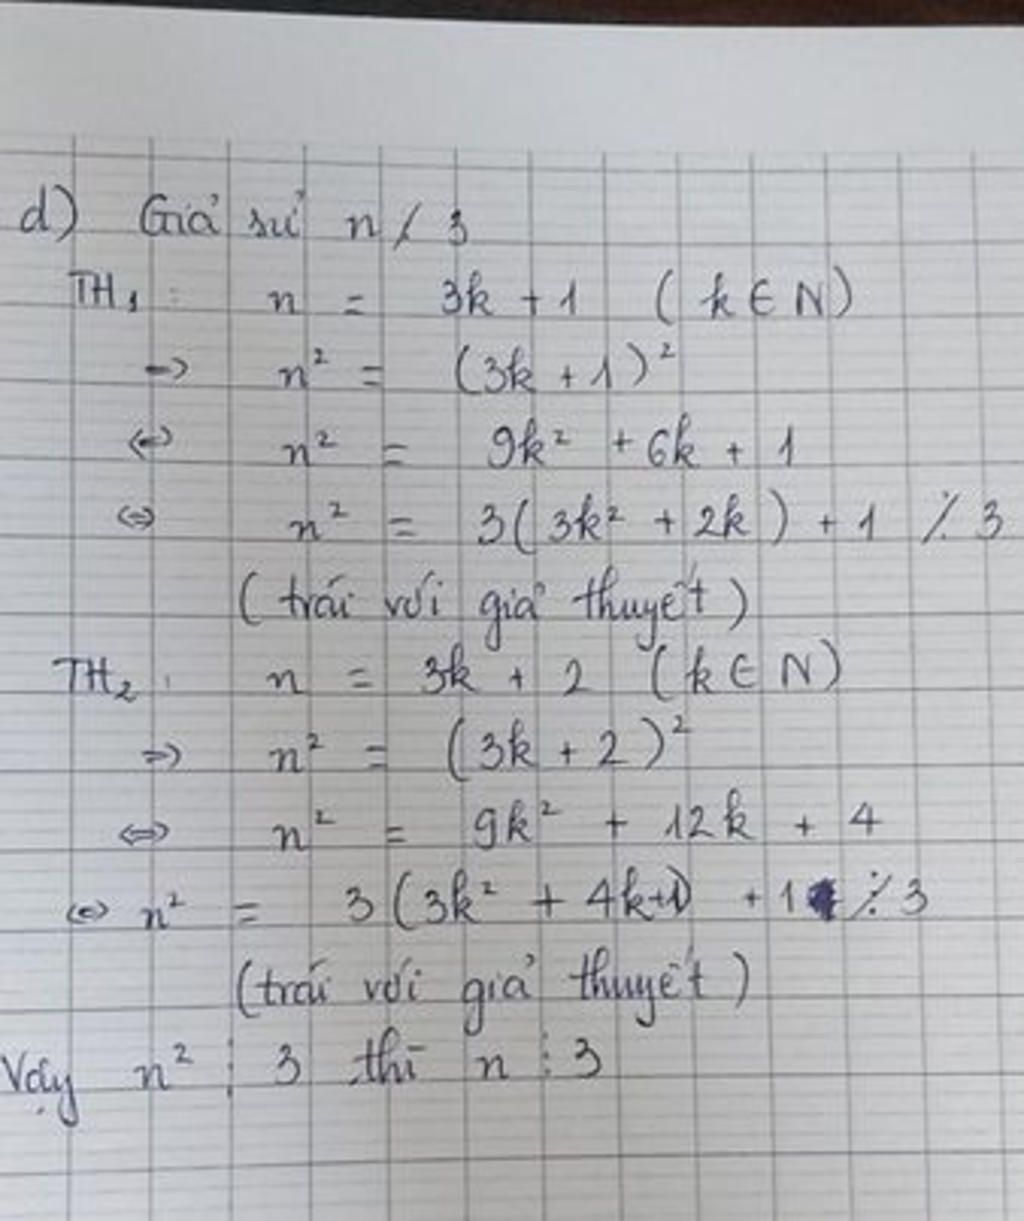 d) Giả sử n ⋮̸ 3
TH₁: n = 3k + 1 (k ∈ N)
=> n² = (3k + 1)²
<=> n² = 9k² + 6k + 1
<=> n² = 3(3k² + 2k) + 1 ⋮̸ 3
(trái với giả thuyết)
TH₂: n = 3k + 2 (k ∈ N)
=> n² = (3k + 2)²
<=> n² = 9k² + 12k + 4
<=> n² = 3(3k² + 4k+1) + 1 ⋮̸ 3
(trái với giả thuyết)
Vậy n² ⋮ 3 thì n ⋮ 3